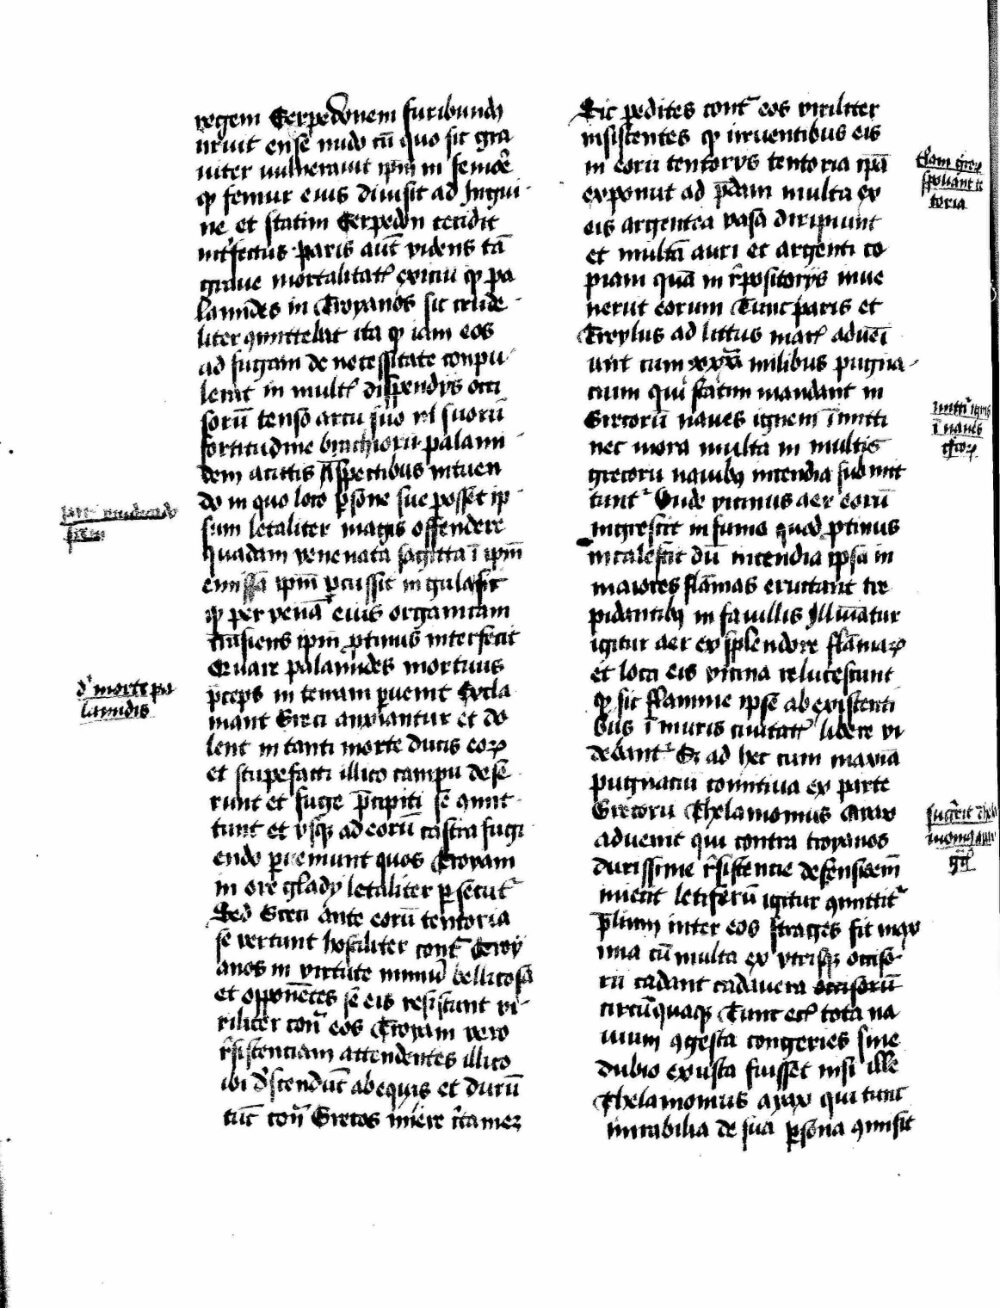 regem Cerpedonem furibundꝰ
irruit ense nudo cū quo sic gra
uiter uulnerauit ip̄m in femore
ꝙ femur eius diuisit ad Ingui
ne et statim Cerpedon cecidit
Int̓fectus paris aūt uidens tā
graue mortalitatꝭ exiciū ꝙ pa
lamides in Troyanos sic crude
liter ꝯmittebat ita ꝙ iam eos
ad fugam de necessitate conpu
lerit in multꝭ dispendijs occi
sorū tenso arcu suo uel suorū
fortitudine brachiorū palami
dem acutis Aspectibus intuen
do in quo loco ꝑsone sue posset ip
sum letaliter magis offendere
quadam venenata sagitta ī ip̄m
emissa ip̄m ꝑcussit in gula sic
ꝙ per venā eius organicam
trāsiens ip̄m ꝓtinus interfecit
Quare palamides mortuus
p̄ceps in terram ꝑuenit Excla
mant Greci anxiantur et do
lent in tanti morte ducis eoꝝ
et stupefacti illico campū dese
runt et fuge p̄cipiti se ꝯmit
tunt et vsqꝫ ad eorū castra fugi
endo ꝑueniunt quos Troyani
in ore gladij letaliter ꝑsecutꝰ
Sed Greci ante eorū tentoria
se vertunt hostiliter cont̄ Troy
anos in virtute nimiū bellicosa
et opponētes se eis resistunt vi
riliter cont̄ eos Troyani vero
r̄sistenciam attendentes illico
ibi d̓scendūt ab equis et durū
tūc cont̄ Grecos iniere c̓tamen
Sic pedites cont̄ eos viriliter
insistentes ꝙ irruentibus eis
in eorū tentorijs tentoria ip̄a
exponūt ad p̄dam multa ex
eis argentea vasa diripiunt
et multā auri et argenti co
piam quā in r̄positorijs inue
nerūt eorum Tunc paris et
Troylus ad littus marꝭ adueī
unt cum xxxᵃ milibus pugna
cium qui statim mandant in
Grecorū naues ignem īmitti
nec mora multa in multis
grecorū nauibꝰ incendia submit
tuntꝰ Unde vicinus aer eorū
ingrescit in fumo quod ꝓtinus
incalescit dū incendia ipsa in
maiores flāmas eructant tre
pidantibꝰ in fauillis Illūiatur
igitur aer ex splendore flāmaꝝ
et loca eis vicina relucescunt
ꝙ sic flamme ipse ab existenti
bus ī muris ciuitatꝭ libere vi
debantꝰ Et ad hec cum maxiā
pugnaciū comitiua ex parte
Grecorū Thelamonius Aiax
aduenit qui contra troyanos
durissime r̄sistencie defensionem
inierit letiferū igitur ꝯmittitꝰ
p̄lium inter eos strages fit max
ima cū multa ex vtrisqꝫ occiso
rū cadant cadauera occisorū
circūquaqꝫ Tunc ec̄ tota na
uium ꝯgesta congeries sine
dubio exusta fuisset nisi ille
Thelamonius ayax qui tunc
mirabilia de sua ꝑsona ꝯmisit
d̓ morte pa
lamidis
spoliant te
toria
Mittūt ignis
ī naues
grecoꝝ